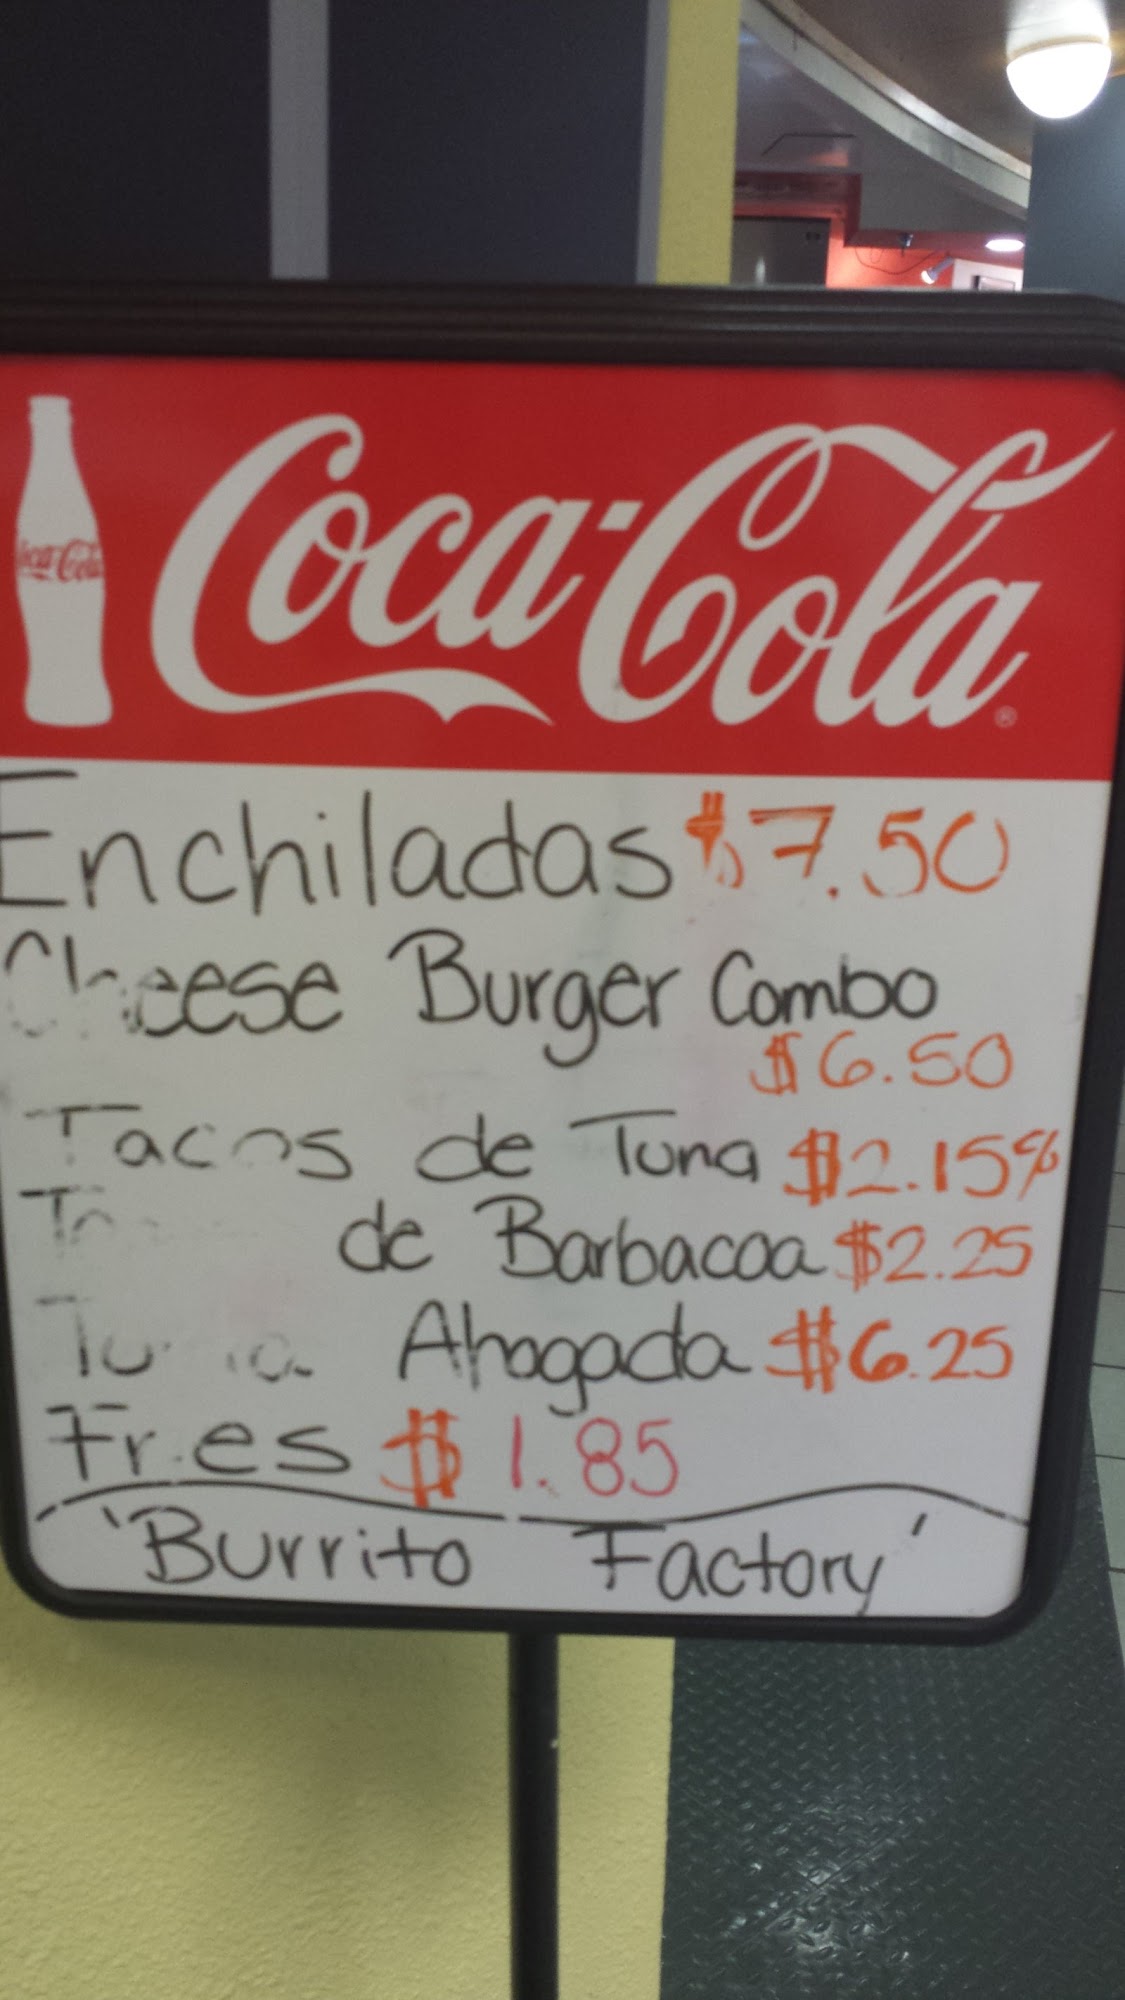 Coca-Cola
Coca-Cola
Enchiladas $7.50
Cheese Burger Combo
$6.50
Tacos de Tuna $2.15
de Barbacoa $2.25
Ahogada $6.25
Fries $1.85
'Burrito Factory'